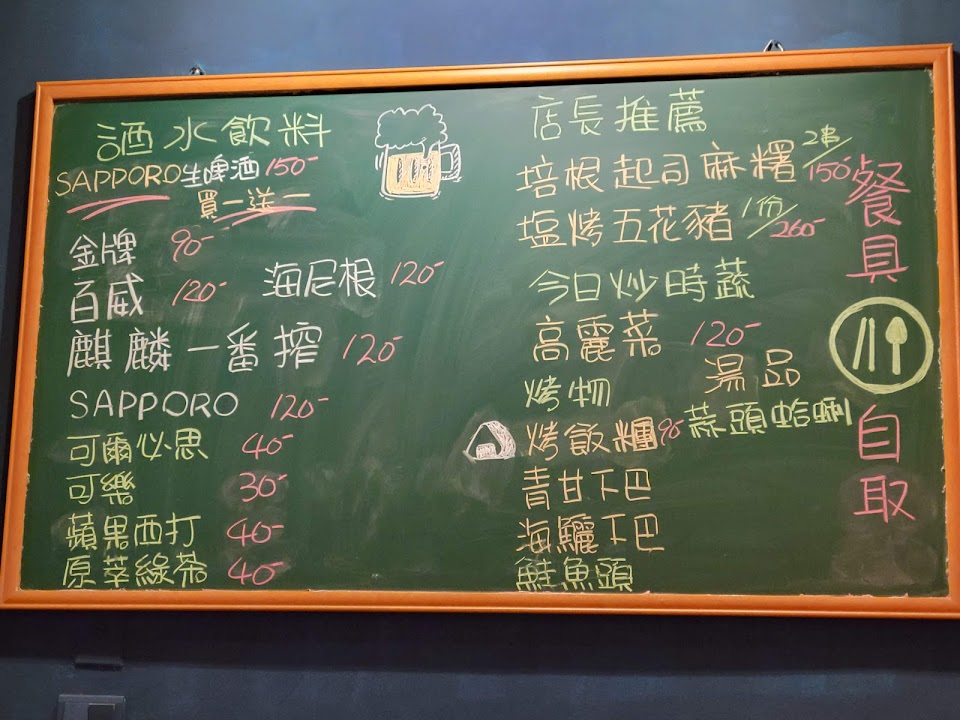 酒水飲料
SAPPORO生啤酒 150-
買一送一
金牌 90-
百威 120-
海尼根 120-
麒麟一番搾 120-
SAPPORO 120-
可爾必思 40-
可樂 30-
蘋果西打 40-
原萃綠茶 40-
店長推薦
培根起司麻糬 2串/150-
塩烤五花豬 1份/260-
今日炒時蔬
高麗菜 120-
湯品
蒜頭蛤蜊
烤物
烤飯糰 90-
青甘下巴
海鱺下巴
鮭魚頭
餐具
自取